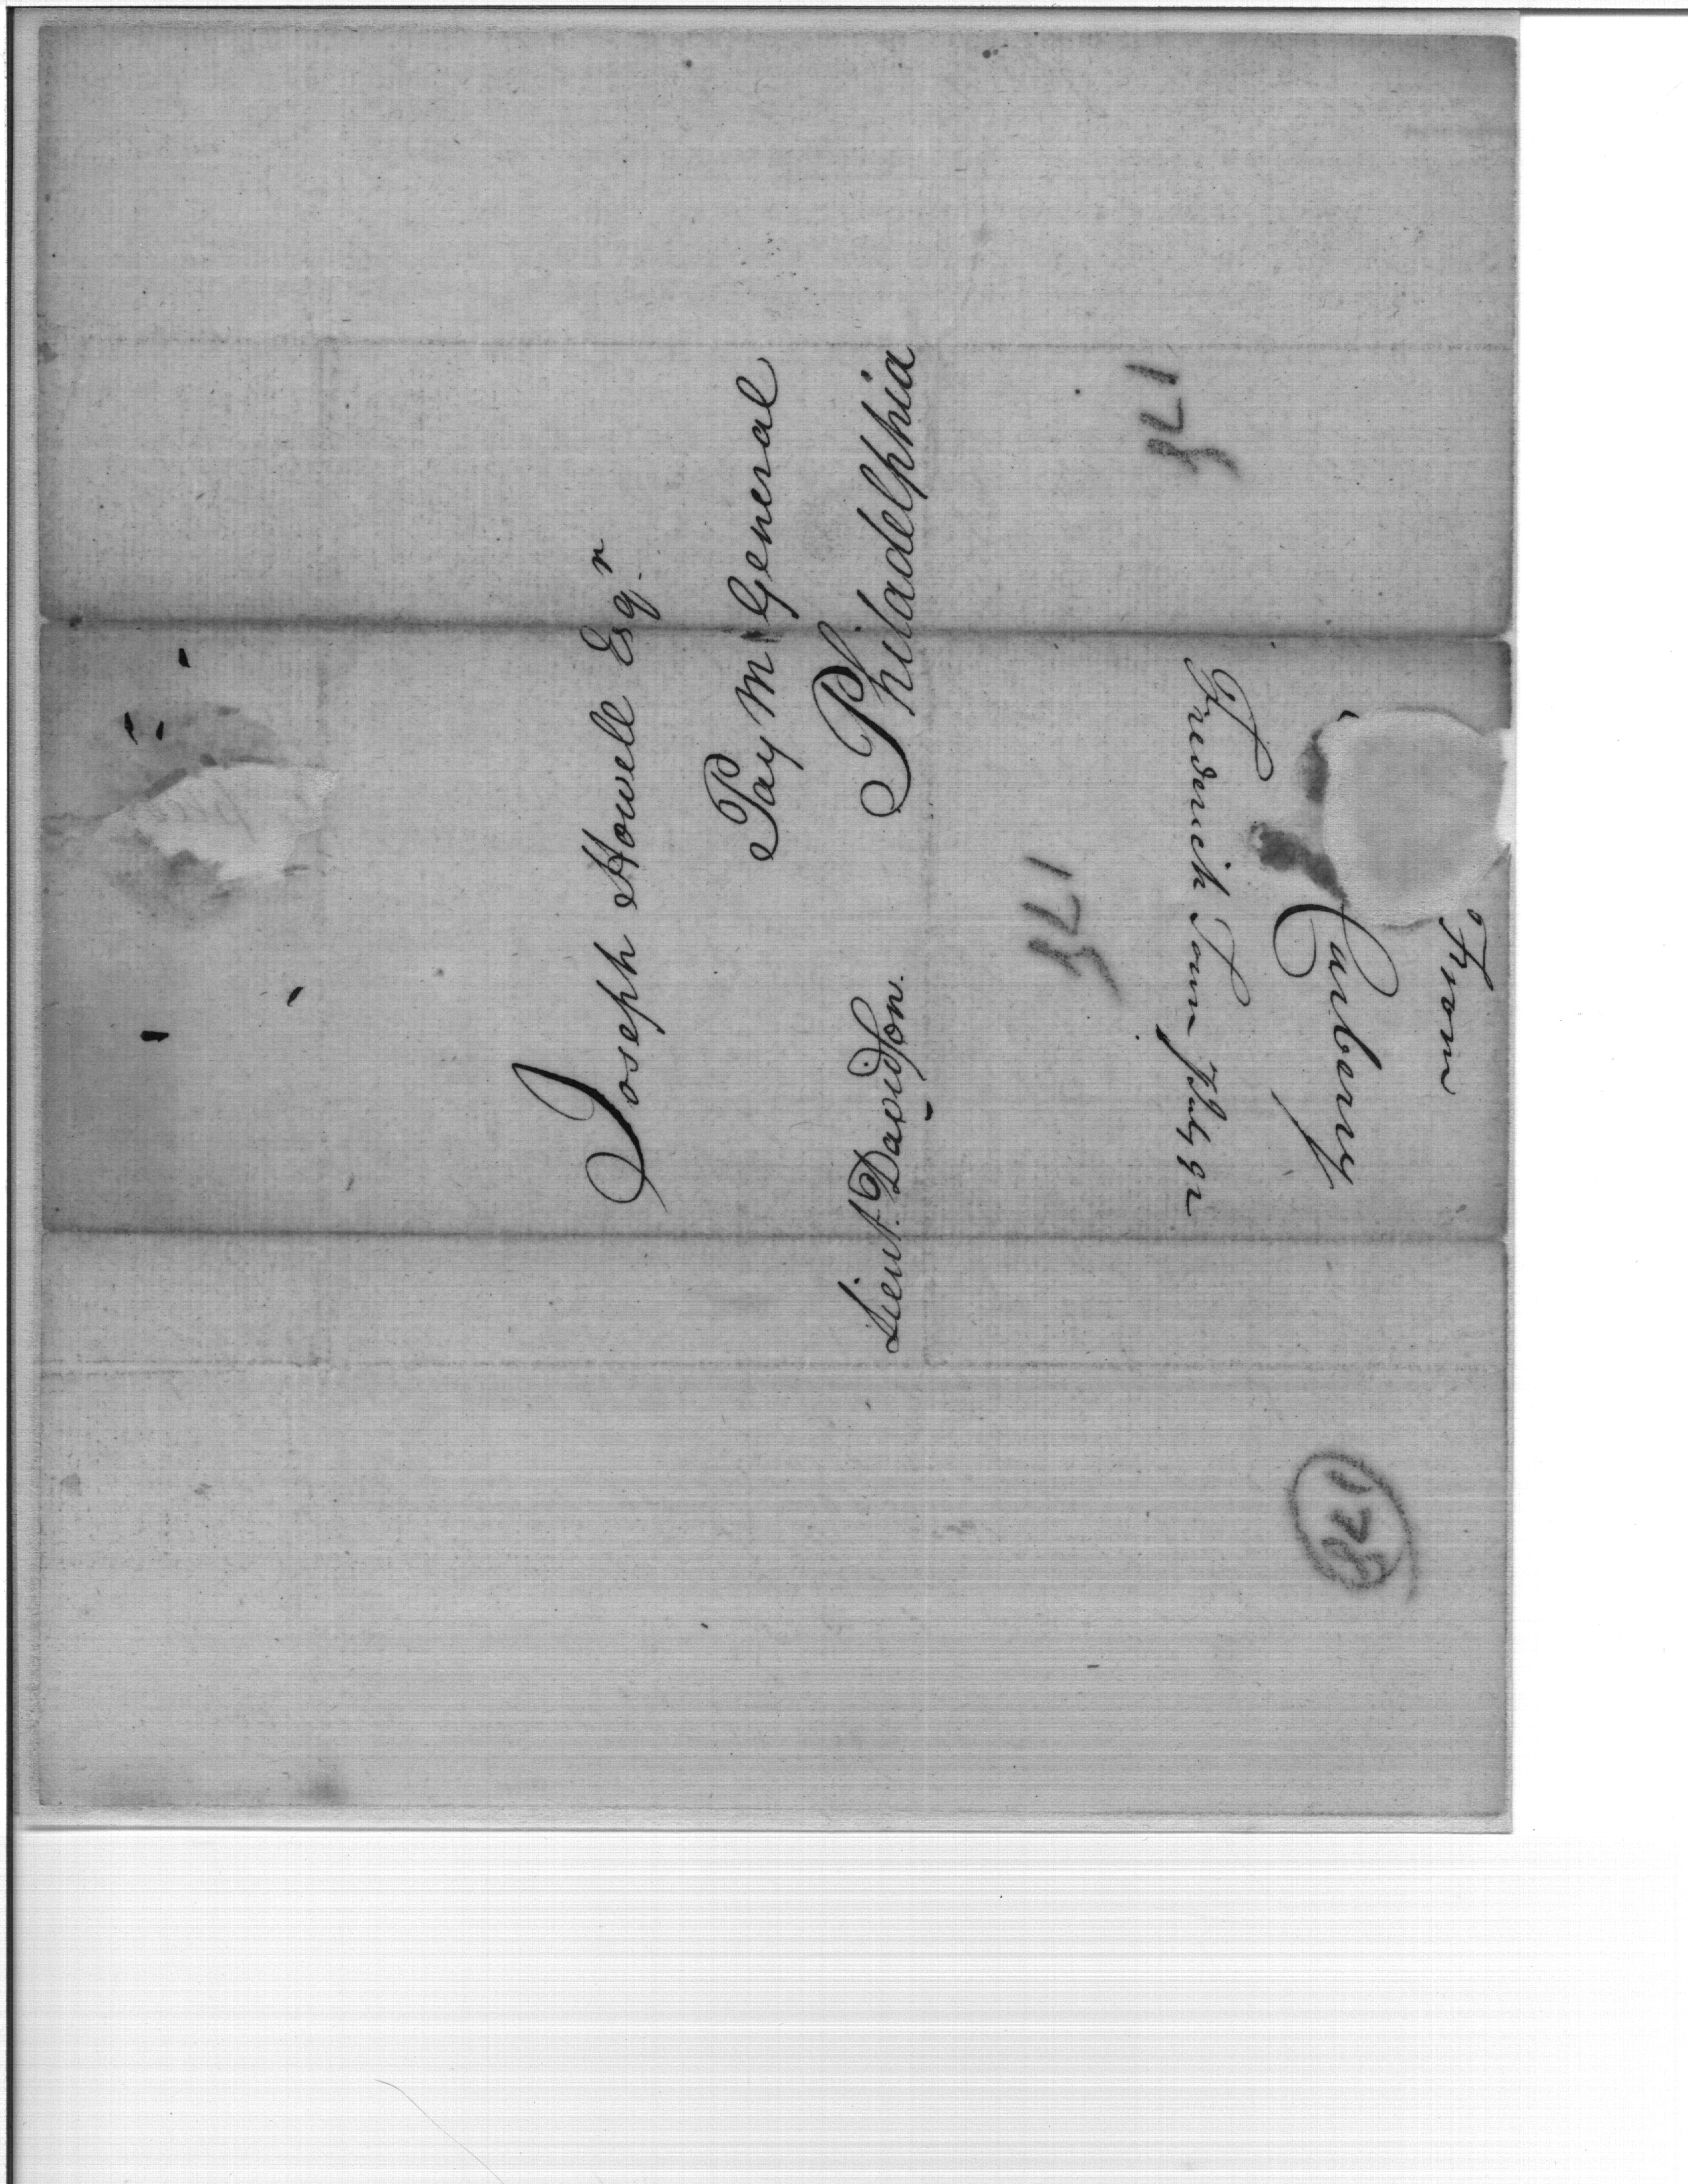 Joseph Howell Esqr.
Pay M General
Philadelphia
Lieut. Davidson.
From
Carbery
Frederick Town July 92
178